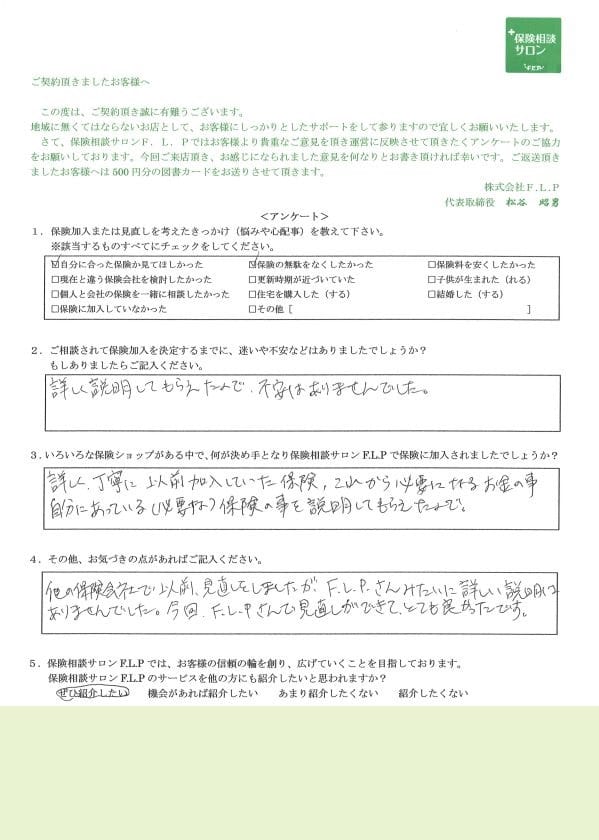 +保険相談
サロン
F.L.P
ご契約頂きましたお客様へ
この度は、ご契約頂き誠に有難うございます。
地域に無くてはならないお店として、お客様にしっかりとしたサポートをして参りますので宜しくお願いいたします。
さて、保険相談サロンF．L．Pではお客様より貴重なご意見を頂き運営に反映させて頂きたくアンケートのご協力
をお願いしております。今回ご来店頂き、お感じになられました意見を何なりとお書き頂ければ幸いです。ご返送頂き
ましたお客様へは500円分の図書カードをお送りさせて頂きます。
株式会社F.L.P
代表取締役 松谷 昭男
＜アンケート＞
1．保険加入または見直しを考えたきっかけ（悩みや心配事）を教えて下さい。
※該当するものすべてにチェックをしてください。
☑自分に合った保険か見てほしかった ☑保険の無駄をなくしたかった □保険料を安くしたかった
□現在と違う保険会社を検討したかった □更新時期が近づいていた □子供が生まれた（れる）
□個人と会社の保険を一緒に相談したかった □住宅を購入した（する） □結婚した（する）
□保険に加入していなかった □その他［ ］
2．ご相談されて保険加入を決定するまでに、迷いや不安などはありましたでしょうか？
もしありましたらご記入ください。
詳しく説明してもらえたので、不安はありませんでした。
3．いろいろな保険ショップがある中で、何が決め手となり保険相談サロンF.L.Pで保険に加入されましたでしょうか？
詳しく、丁寧に 以前加入していた保険，これから必要になるお金の事
自分にあっている（必要な）保険の事を説明してもらえたので。
4．その他、お気づきの点があればご記入ください。
他の保険会社で以前、見直しをしましたが、F.L.P.さんみたいに詳しい説明は
ありませんでした。今回、F.L.Pさんで見直しができて、とても良かったです。
5．保険相談サロンF.L.Pでは、お客様の信頼の輪を創り、広げていくことを目指しております。
保険相談サロンF.L.Pのサービスを他の方にも紹介したいと思われますか？
ぜひ紹介したい 機会があれば紹介したい あまり紹介したくない 紹介したくない